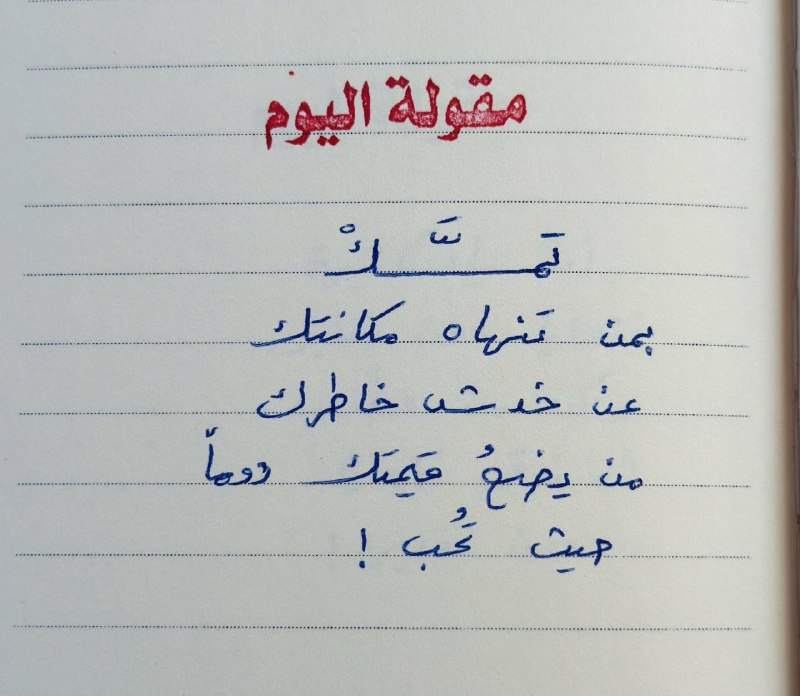 مقولة اليوم
تمسَّكْ
بمن تنهاه مكانتك
عن خدش خاطرك
من يضعُ قيمتك دوماً
حيث تُحب !